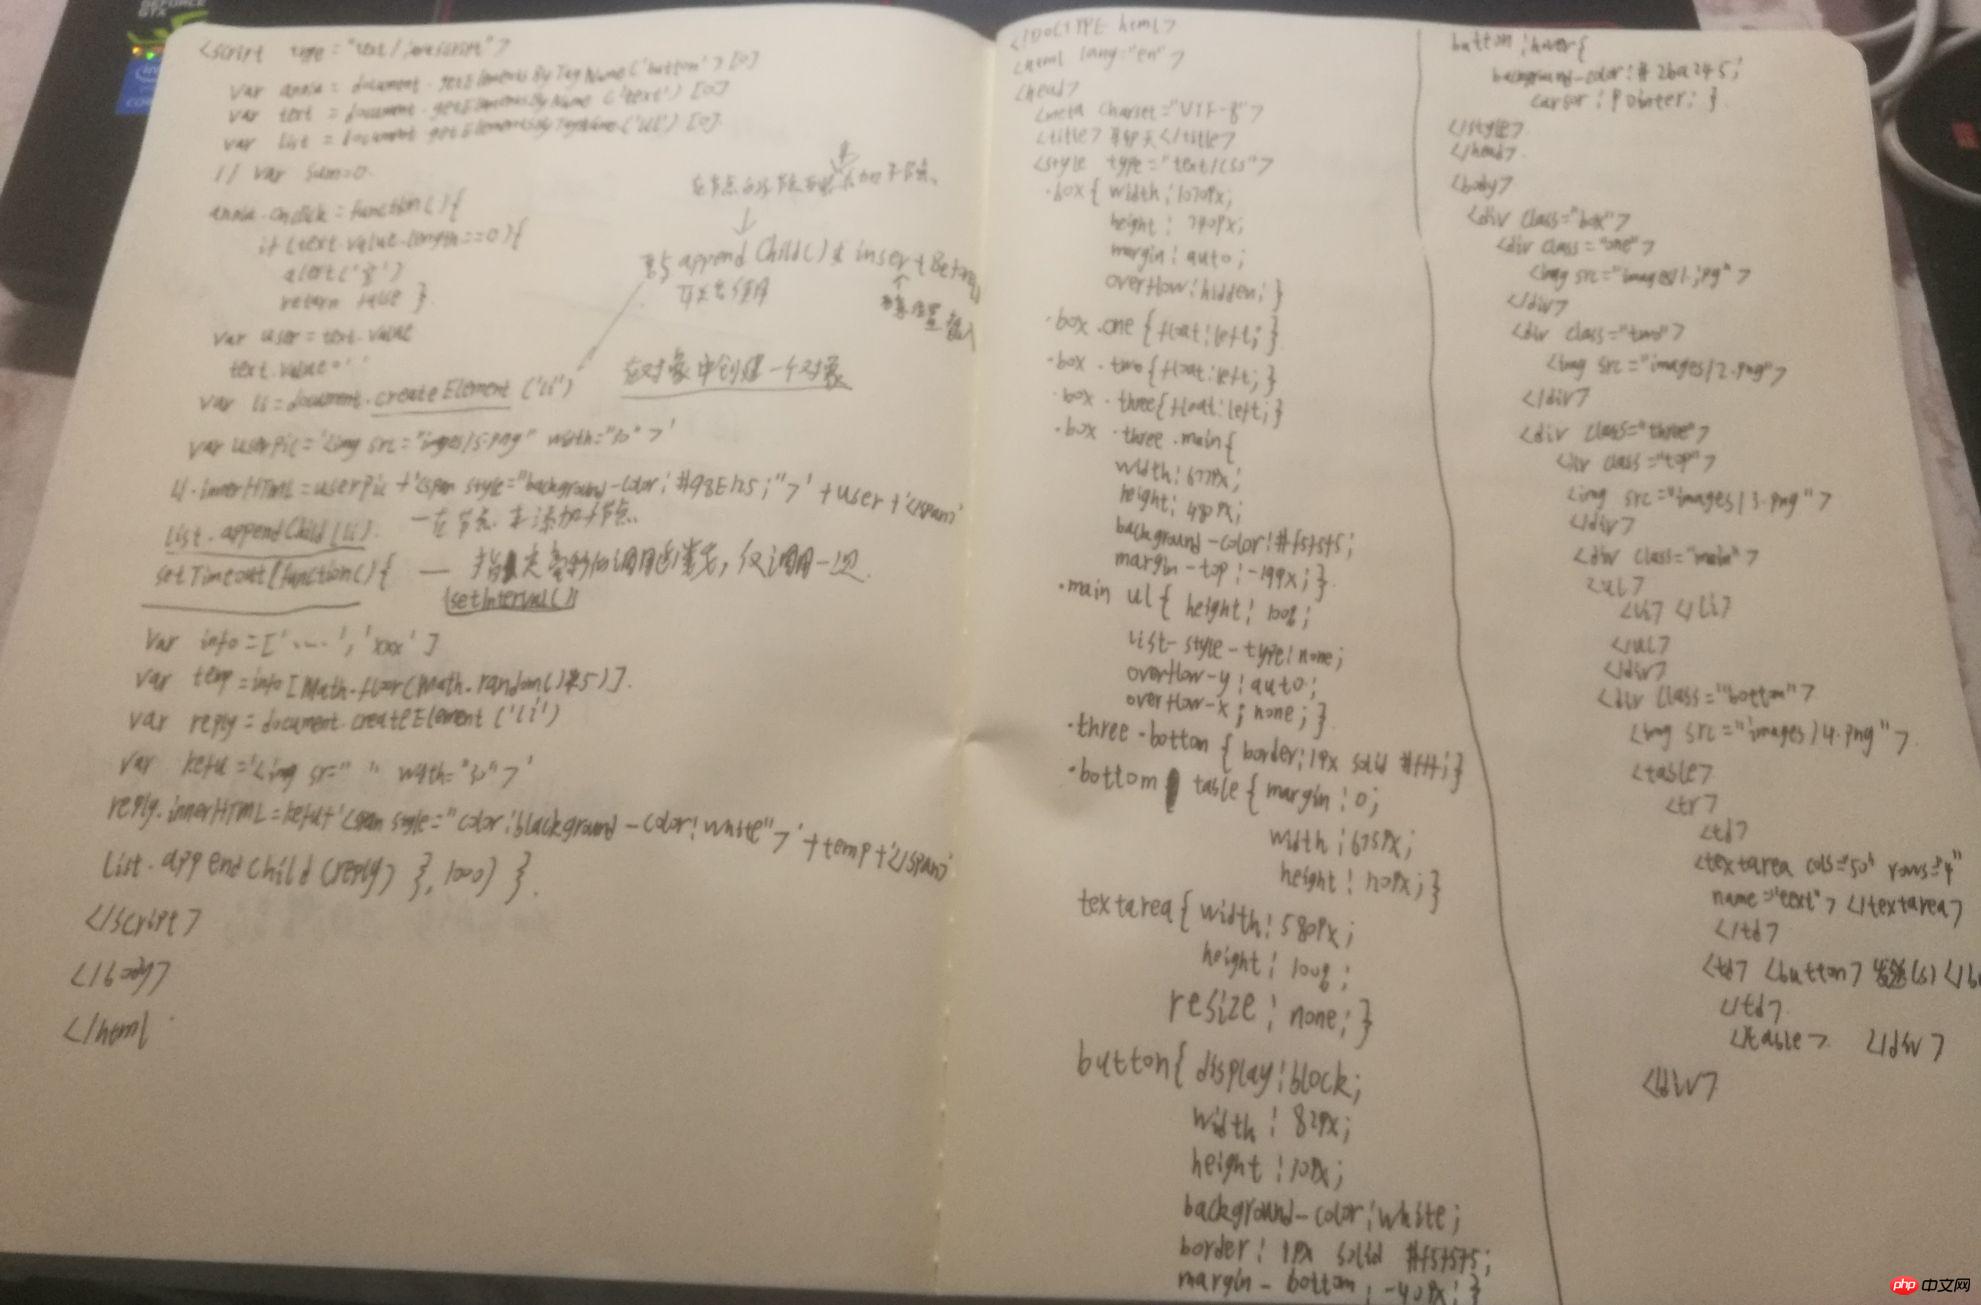 <script type="text/javascript">
var annia = document.getElementsByTagName('button')[0]
var text = document.getElementsByName('text')[0]
var list = document.getElementsByTagName('ul')[0]
// var sum=0
annia.onclick = function(){
if(text.value.length==0){
alert('')
return false }
var user = text.value
text.value=''
var li=document.createElement('li')
appendChild()或 insertBefore()
在对象中创建一个对象
var userPic='<img src="images/5.png" width="30">'
li.innerHTML=userPic+'<span style="background-color:#98E125;">'+user+'</span>
list.appendChild(li). —在节点 添加子节点
setTimeout(function(){ — 调用函数,仅调用一次.
setInterval()
var info=['....','xxx']
var temp=info[Math.floor(Math.random()*5)].
var reply=document.createElement('li')
var kefu='<img sr=" " width="30">'
reply.innerHTML=kefu+'<span style="color:background-color:white">'+temp+'</span>
list.appendChild(reply) },1000) }.
</script>
</body>
</html
<!DOCTYPE html>
<html lang="en">
<head>
<meta charset="UTF-8">
<title>聊天</title>
<style type="text/css">
.box{ width:1070px;
height: 740px;
margin:auto;
overflow:hidden;}
.box .one{float:left;}
.box .two{float:left;}
.box .three{float:left;}
.box .three .main{
width:677px;
height:480px;
background-color:#f5f5f5;
margin-top:-199x;}
.main ul{ height: 100%;
list-style-type:none;
overflow-y:auto;
overflow-x;none;}
.three .bottom { border:1px solid #fff;}
.bottom table{margin:0;
width:675px;
height:120px;}
textarea{width:580px;
height: 100%;
resize: none;}
button{display:block;
width: 82px;
height:70px;
background-color:white;
border: 1px solid #f5f5f5;
margin-bottom:-40px;}
button:hover{
background-color:#2ba245;
cursor:pointer;}
</style>
</head>
<body>
<div class="box">
<div class="one">
<img src="images/1.jpg">
</div>
<div class="two">
<img src="images/2.png">
</div>
<div class="three">
<div class="top">
<img src="images/3.png">
</div>
<div class="main">
<ul>
<li></li>
</ul>
</div>
<div class="bottom">
<img src="images/4.png">
<table>
<tr>
<td>
<textarea cols="50" rows="4"
name="text"></textarea>
</td>
<td><button>发送(s)</b
</td>
</table> </div>
</div>
php 中文网